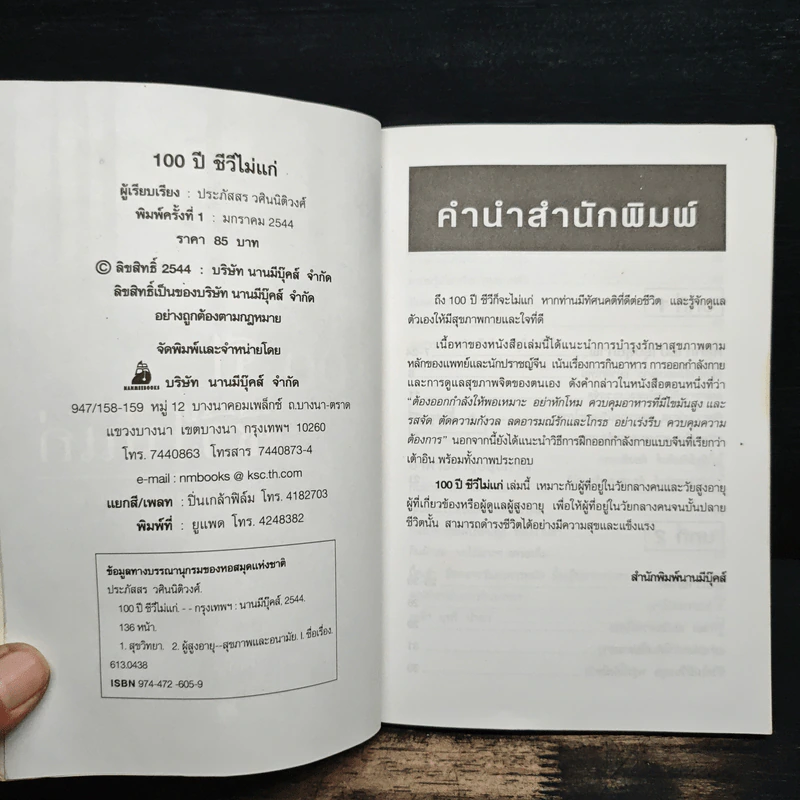 100 ปี ชีวีไม่แก่
ผู้เรียบเรียง : ประภัสสร วศินนิติวงศ์
พิมพ์ครั้งที่ 1 : มกราคม 2544
ราคา 85 บาท
© ลิขสิทธิ์ 2544 : บริษัท นานมีบุ๊คส์ จำกัด
ลิขสิทธิ์เป็นของบริษัท นานมีบุ๊คส์ จำกัด
อย่างถูกต้องตามกฎหมาย
จัดพิมพ์และจำหน่ายโดย
NANMEEBOOKS
บริษัท นานมีบุ๊คส์ จำกัด
947/158-159 หมู่ 12 บางนาคอมเพล็กซ์ ถ.บางนา-ตราด
แขวงบางนา เขตบางนา กรุงเทพฯ 10260
โทร. 7440863 โทรสาร 7440873-4
e-mail : nmbooks @ ksc.th.com
แยกสี/เพลท : ปิ่นเกล้าฟิล์ม โทร. 4182703
พิมพ์ที่ : ยูแพด โทร. 4248382
ข้อมูลทางบรรณานุกรมของหอสมุดแห่งชาติ
ประภัสสร วศินนิติวงศ์.
100 ปี ชีวีไม่แก่. - - กรุงเทพฯ : นานมีบุ๊คส์, 2544.
136 หน้า.
1. สุขวิทยา. 2. ผู้สูงอายุ--สุขภาพและอนามัย. I. ชื่อเรื่อง.
613.0438
ISBN 974-472-605-9
คำนำสำนักพิมพ์
ถึง 100 ปี ชีวีก็จะไม่แก่ หากท่านมีทัศนคติที่ดีต่อชีวิต และรู้จักดูแล
ตัวเองให้มีสุขภาพกายและใจที่ดี
เนื้อหาของหนังสือเล่มนี้ได้แนะนำการบำรุงรักษาสุขภาพตาม
หลักของแพทย์และนักปราชญ์จีน เน้นเรื่องการกินอาหาร การออกกำลังกาย
และการดูแลสุขภาพจิตของตนเอง ดังคำกล่าวในหนังสือตอนหนึ่งที่ว่า
"ต้องออกกำลังให้พอเหมาะ อย่าหักโหม ควบคุมอาหารที่มีไขมันสูง และ
รสจัด ตัดความกังวล ลดอารมณ์รักและโกรธ อย่าเร่งรีบ ควบคุมความ
ต้องการ" นอกจากนี้ยังได้แนะนำวิธีการฝึกออกกำลังกายแบบจีนที่เรียกว่า
เต้าอิน พร้อมทั้งภาพประกอบ
100 ปี ชีวีไม่แก่ เล่มนี้ เหมาะกับผู้ที่อยู่ในวัยกลางคนและวัยสูงอายุ
ผู้ที่เกี่ยวข้องหรือผู้ดูแลผู้สูงอายุ เพื่อให้ผู้ที่อยู่ในวัยกลางคนจนบั้นปลาย
ชีวิตนั้น สามารถดำรงชีวิตได้อย่างมีความสุขและแข็งแรง
สำนักพิมพ์นานมีบุ๊คส์